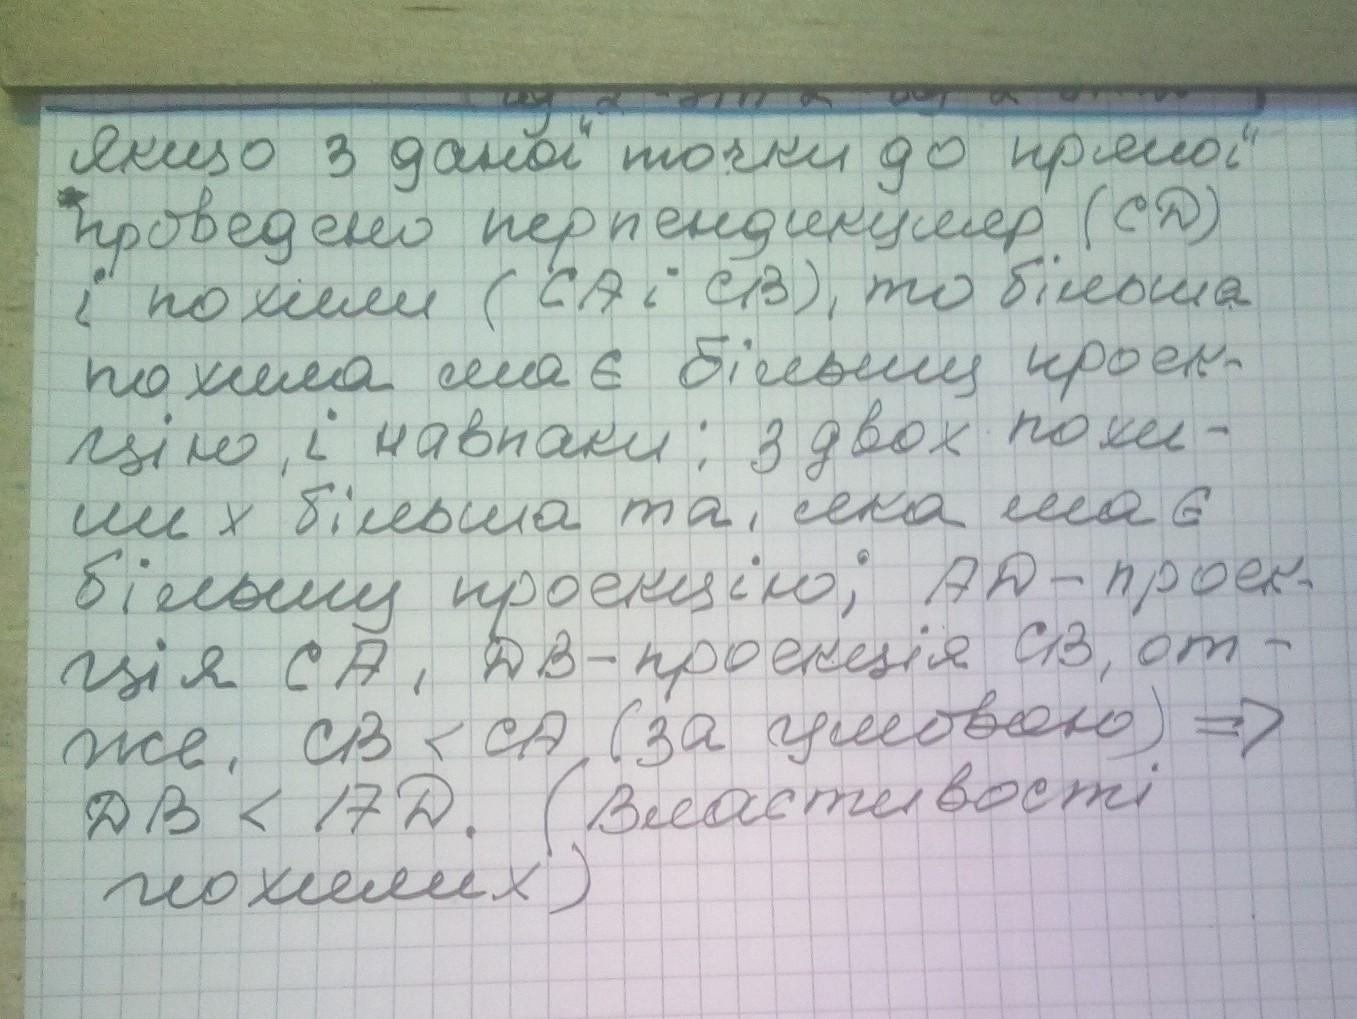 якщо з даної точки до прямої
проведено перпендикуляр (CD)
і похили (CA і CB), то більша
похила має більшу проек-
цію, і навпаки: з двох похи-
лих більша та, яка має
більшу проекцію; AD - проек-
ція CA, DB - проекція CB, от-
же, CB < CA (за умовою) =>
DB < AD. (Властивості
похилих)